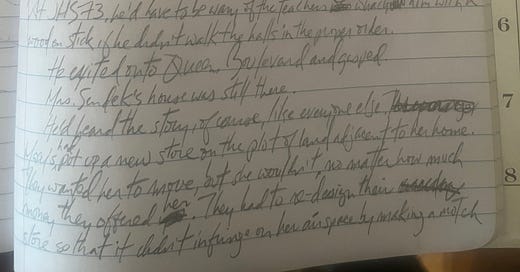 At JHS 73, he'd have to be wary of the teachers him with a
wooden stick if he didn't walk the halls in the proper order.
6
He exited onto Queens Boulevard and gasped.
Mrs. Sendek's house was still there.
He'd heard the story, of course, like everyone else.
7
had
Macy's put up a new store on the plot of land adjacent to her home.
They wanted her to move, but she wouldn't, no matter how much
8
money they offered her. They had to re-design their
store so that it didn't infringe on her airspace by making a notch